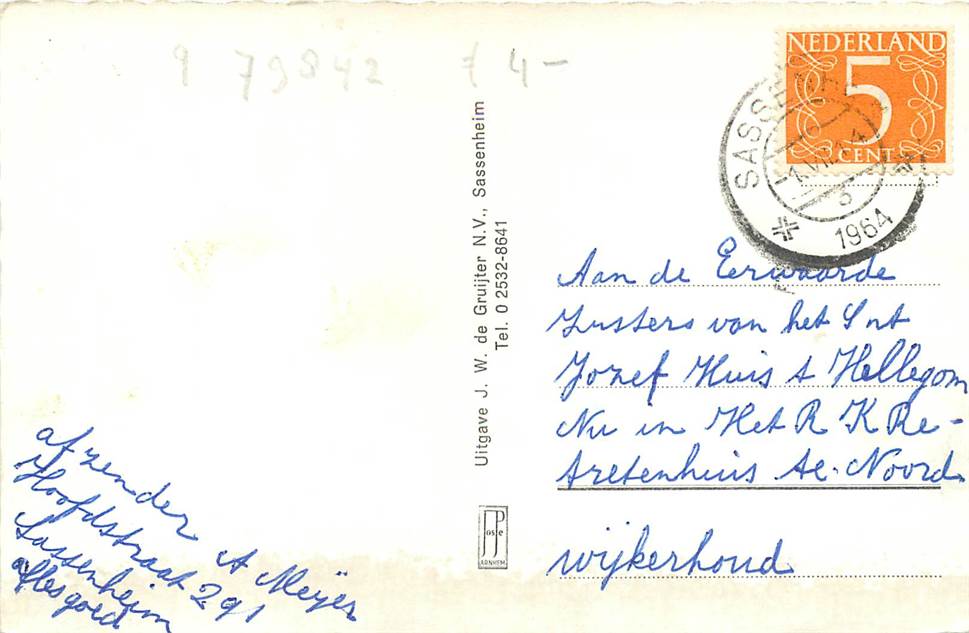 9 79842 f 4-
NEDERLAND
5
CENT
SASSENHEIM
1964
Uitgave J. W. de Gruijter N.V., Sassenheim
Tel. 0 2532-8641
Aan de Eerwaarde
Zusters van het Sint
Jozef Huis te Hellegom
Nu in Het R K Re-
tretenhuis te. Noord
wijkerhoud
afzender
A Meijer
Hoofdstraat 291
Sassenheim
alles goed
JosPe
ARNHEM